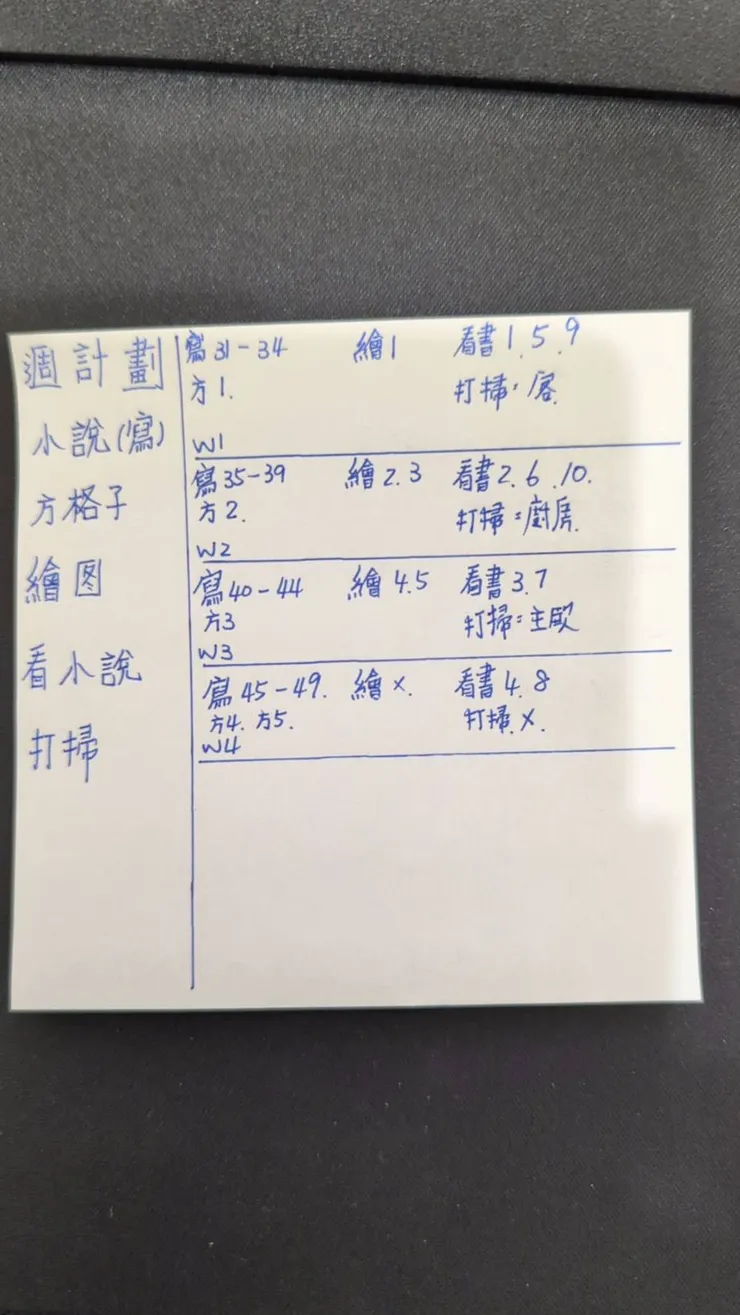 週計劃
小說(寫)
方格子
繪图
看小說
打掃
寫31-34 繪1 看書1.5.9
方1. 打掃:客
W1
寫35-39 繪2.3 看書2.6.10.
方2. 打掃:廚房.
W2
寫40-44 繪4.5 看書3.7
方3 打掃:主臥
W3
寫45-49. 繪x. 看書4.8
方4.方5. 打掃.x.
W4